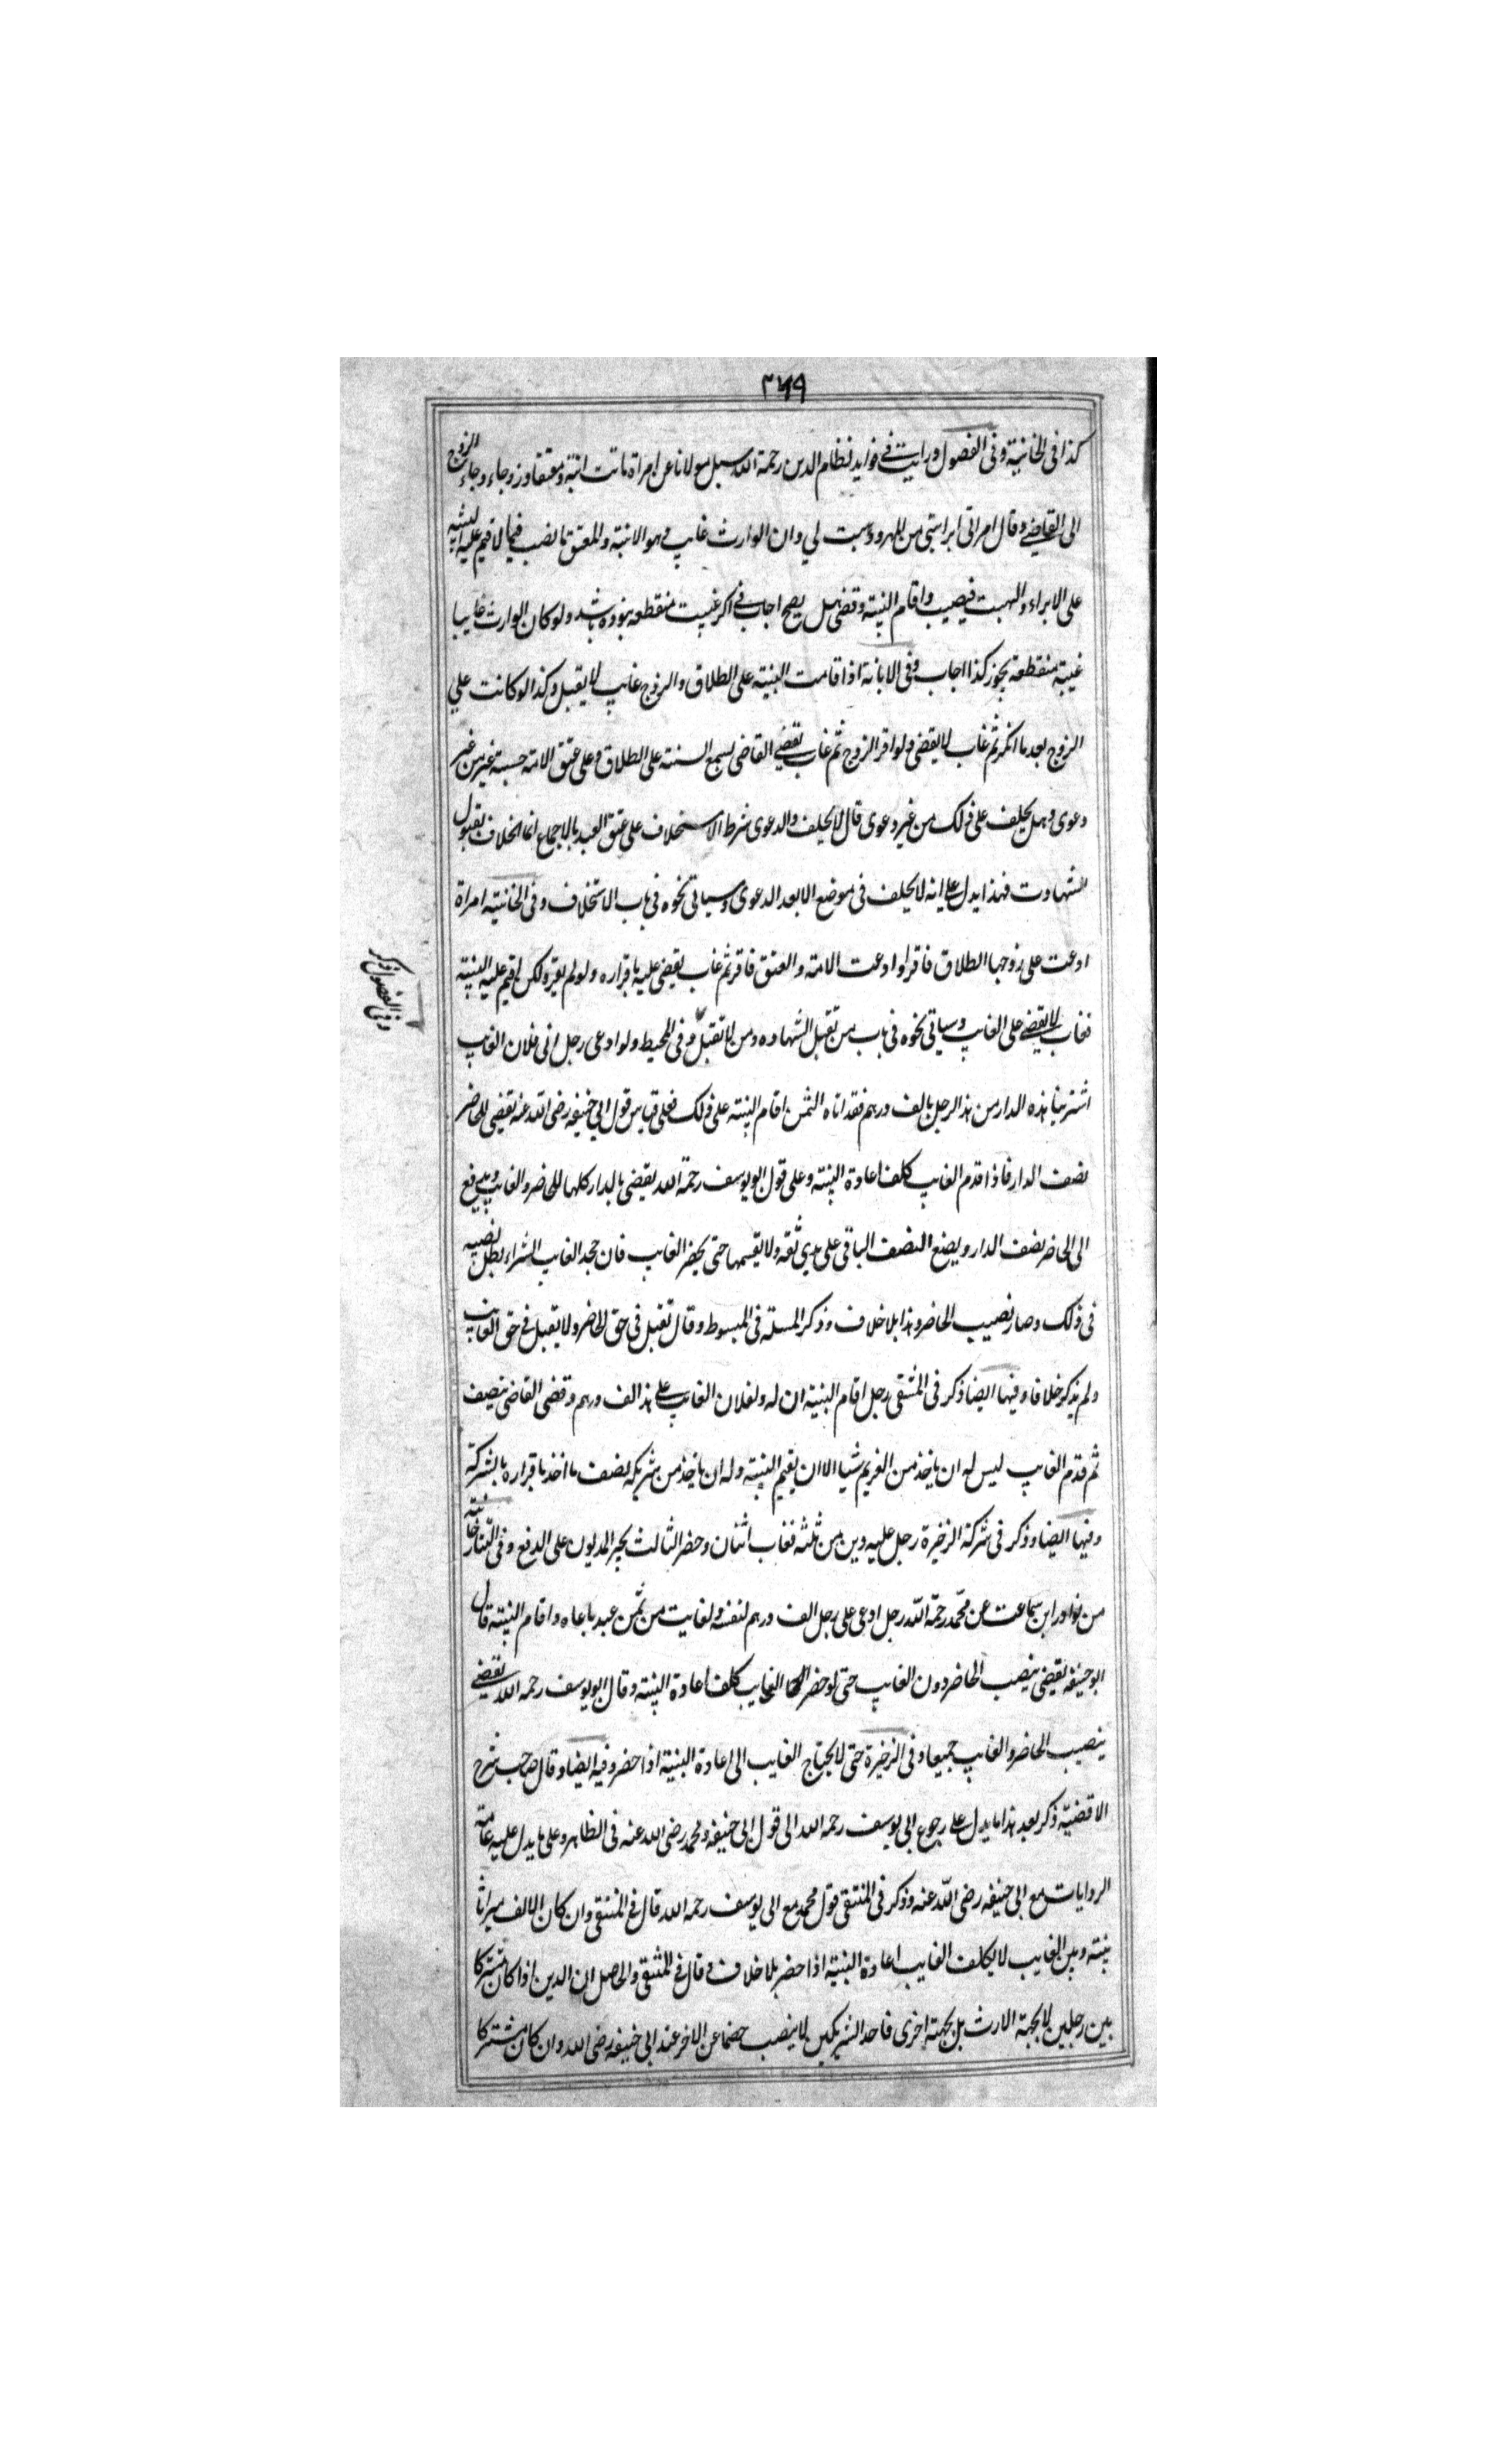 ٣٤٩
كذا فى الخانية وفى الفصول ورايت فے فوايد نظام الدين رحمة الله سيل مولانا عن امراة ماتت ابنة ومعتقا وزوجاء وجاء الزوج
الى القاضے وقال امراتى ابراستنى من المهر ووهبت لي وان الوارث غايب وهو الابنة والمعتق فانصب قيما لاقيم عليه البينة
على الابراء والهبت فينصب واقام البينة وقضى هل يصح اجاب فے اكر غيبت منقطعه نبوده باشد ولو كان الوارث غايبا
غيبة منقطعة يجوز كذا اجاب وفى الابانة اذا قامت البينة على الطلاق والزوج غايب لا يقبل وكذا لو كانت علي
الزوج بعد ما انكر ثم غاب لا يقضى ولو اقر الزوج ثم غاب يقضے القاضى يسمع البينة على الطلاق وعلى عتق الامة حسبة غير من غير
دعوى وهل يحلف على ذلك من غير دعوى قال لا يحلف والدعوى شرط الاستحلاف على عتق العبد بالاجماع انما الخلاف بقبول
الشهادت فهذا يدل على انه لا يحلف فى موضع الا بعد الدعوى وسياتى نحوه فى باب الاستحلاف وفى الخانية امراة
ادعت على زوجها الطلاق فاقر او ادعت الامة والعتق فاقر ثم غاب يقضى عليه باقراره ولو لم يقر ولكن اقيم عليه البينة
فغاب لا يقضے على الغايب وسياتى نحوه فى باب من تقبل الشهاده ومن لا تقبل وفى المحيط ولو ادعى رجل انى وفلان الغايب
وفى الفصول ذكر
اشترينا هذه الدار من هذا الرجل بالف درهم فقد اتاه الثمن اقام البينة على ذلك فعلى قياس قول ابي حنيفه رضى الله عنه يقضى للحاضر
نصف الدار فاذا قدم الغايب كلف اعادة البينة وعلى قول ابو يوسف رحمة الله يقضى بالدار كلها للحاضر والغايب ويدفع
الى الحاضر نصف الدار ويضع النصف الباقى على يدي ثقه ولا يقسمها حتى يحضر الغايب فان جحد الغايب الشراء بطل نصيبه
فى ذلك وصار نصيب الحاضر وهذا بلا خلاف وذكر المسلة فى المبسوط وقال تقبل فى حق الحاضر ولا يقبل فے حق الغايب
ولم يذكر خلافا وفيها ايضا ذكر فى المنتقى رجل اقام البينة ان له ولفلان الغايب على هذا الف درهم وقضى القاضى بنصف
ثم قدم الغايب ليس له ان ياخذ من الغريم شيا الا ان يقيم البينة وله ان ياخذ من شريكه نصف ما اخذ باقراره بالشركة
وفيها ايضا وذكر فى شركة الذخيرة رجل عليه دين من ثلثه فغاب اثنان وحضر الثالث يجبر المديون على الدفع وفى التتارخانية
من نوادر ابن سماعت عن محمد رحمة الله رجل ادعى على رجل الف درهم لنفسه ولغايت من ثمن عبد باعاه واقام البينة قال
ابو حنيفه يقضى بنصب الحاضر دون الغايب حتى لو حضر الغايب كلف اعادة البينة وقال ابو يوسف رحمه الله يقضے
بنصيب الحاضر والغايب جميعا وفى الذخيرة حتى لا يحتاج الغايب الى اعادة البينة اذا حضر وفيه ايضا وقال صاحب شرح
الاقضية ذكر بعد هذا ما يدل على رجوع ابى يوسف رحمه الله الى قول ابى حنيفه ومحمد رضى الله عنه فى الظاهر وعلى ما يدل عليه عامة
الروايات مع ابى حنيفه رضى الله عنه وذكر فى المنتقى قول محمد مع ابى يوسف رحمه الله قال فے المنتقى وان كان الالف ميراثا
بينه وبين الغايب لا يكلف الغايب اعادة البينة اذا حضر بلا خلاف وقال فے المنتقى والحاصل ان الدين اذا كان مشتركا
بين رجلين لا بجهة الارث بل بجهة اخرى فاحد الشريكين لا ينصب خصما عن الاخر عند ابى حنيفه رضى الله وان كان مشتركا